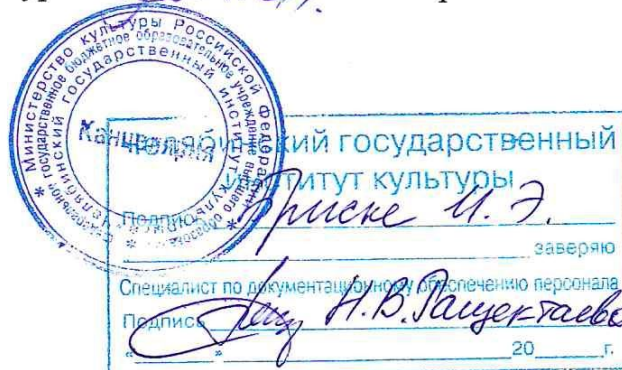 Министерство культуры Российской Федерации
Федеральное государственное бюджетное образовательное учреждение высшего образования
Челябинский государственный институт культуры
Канцелярия
Челябинский государственный
институт культуры
Подпись Бриске И. Э.
заверяю
Специалист по документационному обеспечению персонала
Подпись Н.В.
« » 20 г.